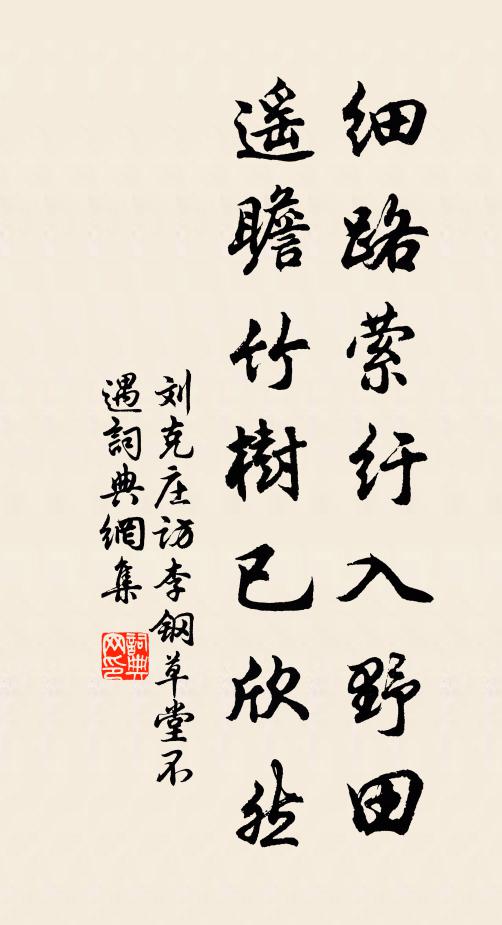 细路萦纡入野田
遥瞻竹樹已欣然
刘克庄访李鋼草堂不
遇詞典網集
詞典网印